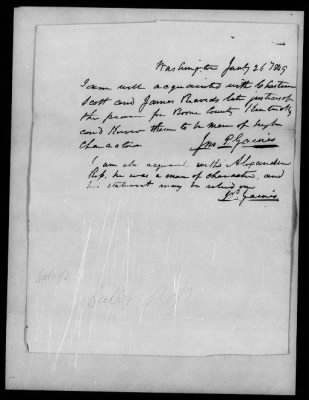 Washington Jany 26 1849
I am well acquainted with Chasteen
Scott and James late justices of
the peace for Boone County Kentucky
and Know them to be men of high
Character Jno P. Gaines
I am also acquainted with Alexander
he was a man of character, and
his statement may be relied on
J. P. Gaines
Sally